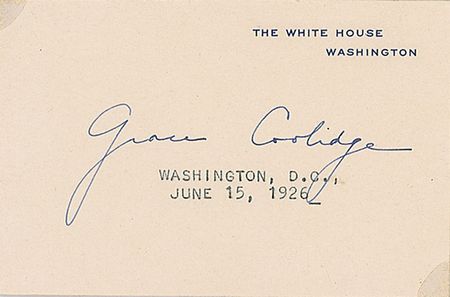 THE WHITE HOUSE
WASHINGTON
Grace Coolidge
WASHINGTON, D.C.,
JUNE 15, 1926